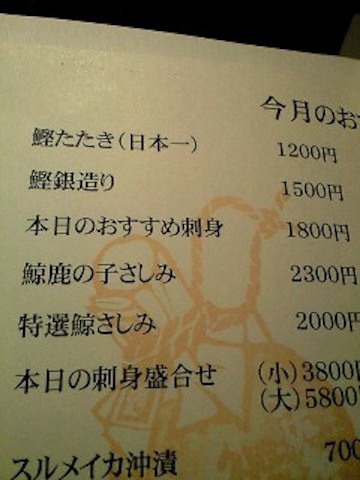 今月のおす
鰹たたき（日本一） 1200円
鰹銀造り 1500円
本日のおすすめ刺身 1800円
鯨鹿の子さしみ 2300円
特選鯨さしみ 2000円
本日の刺身盛合せ （小）3800円
（大）5800円
スルメイカ沖漬 700